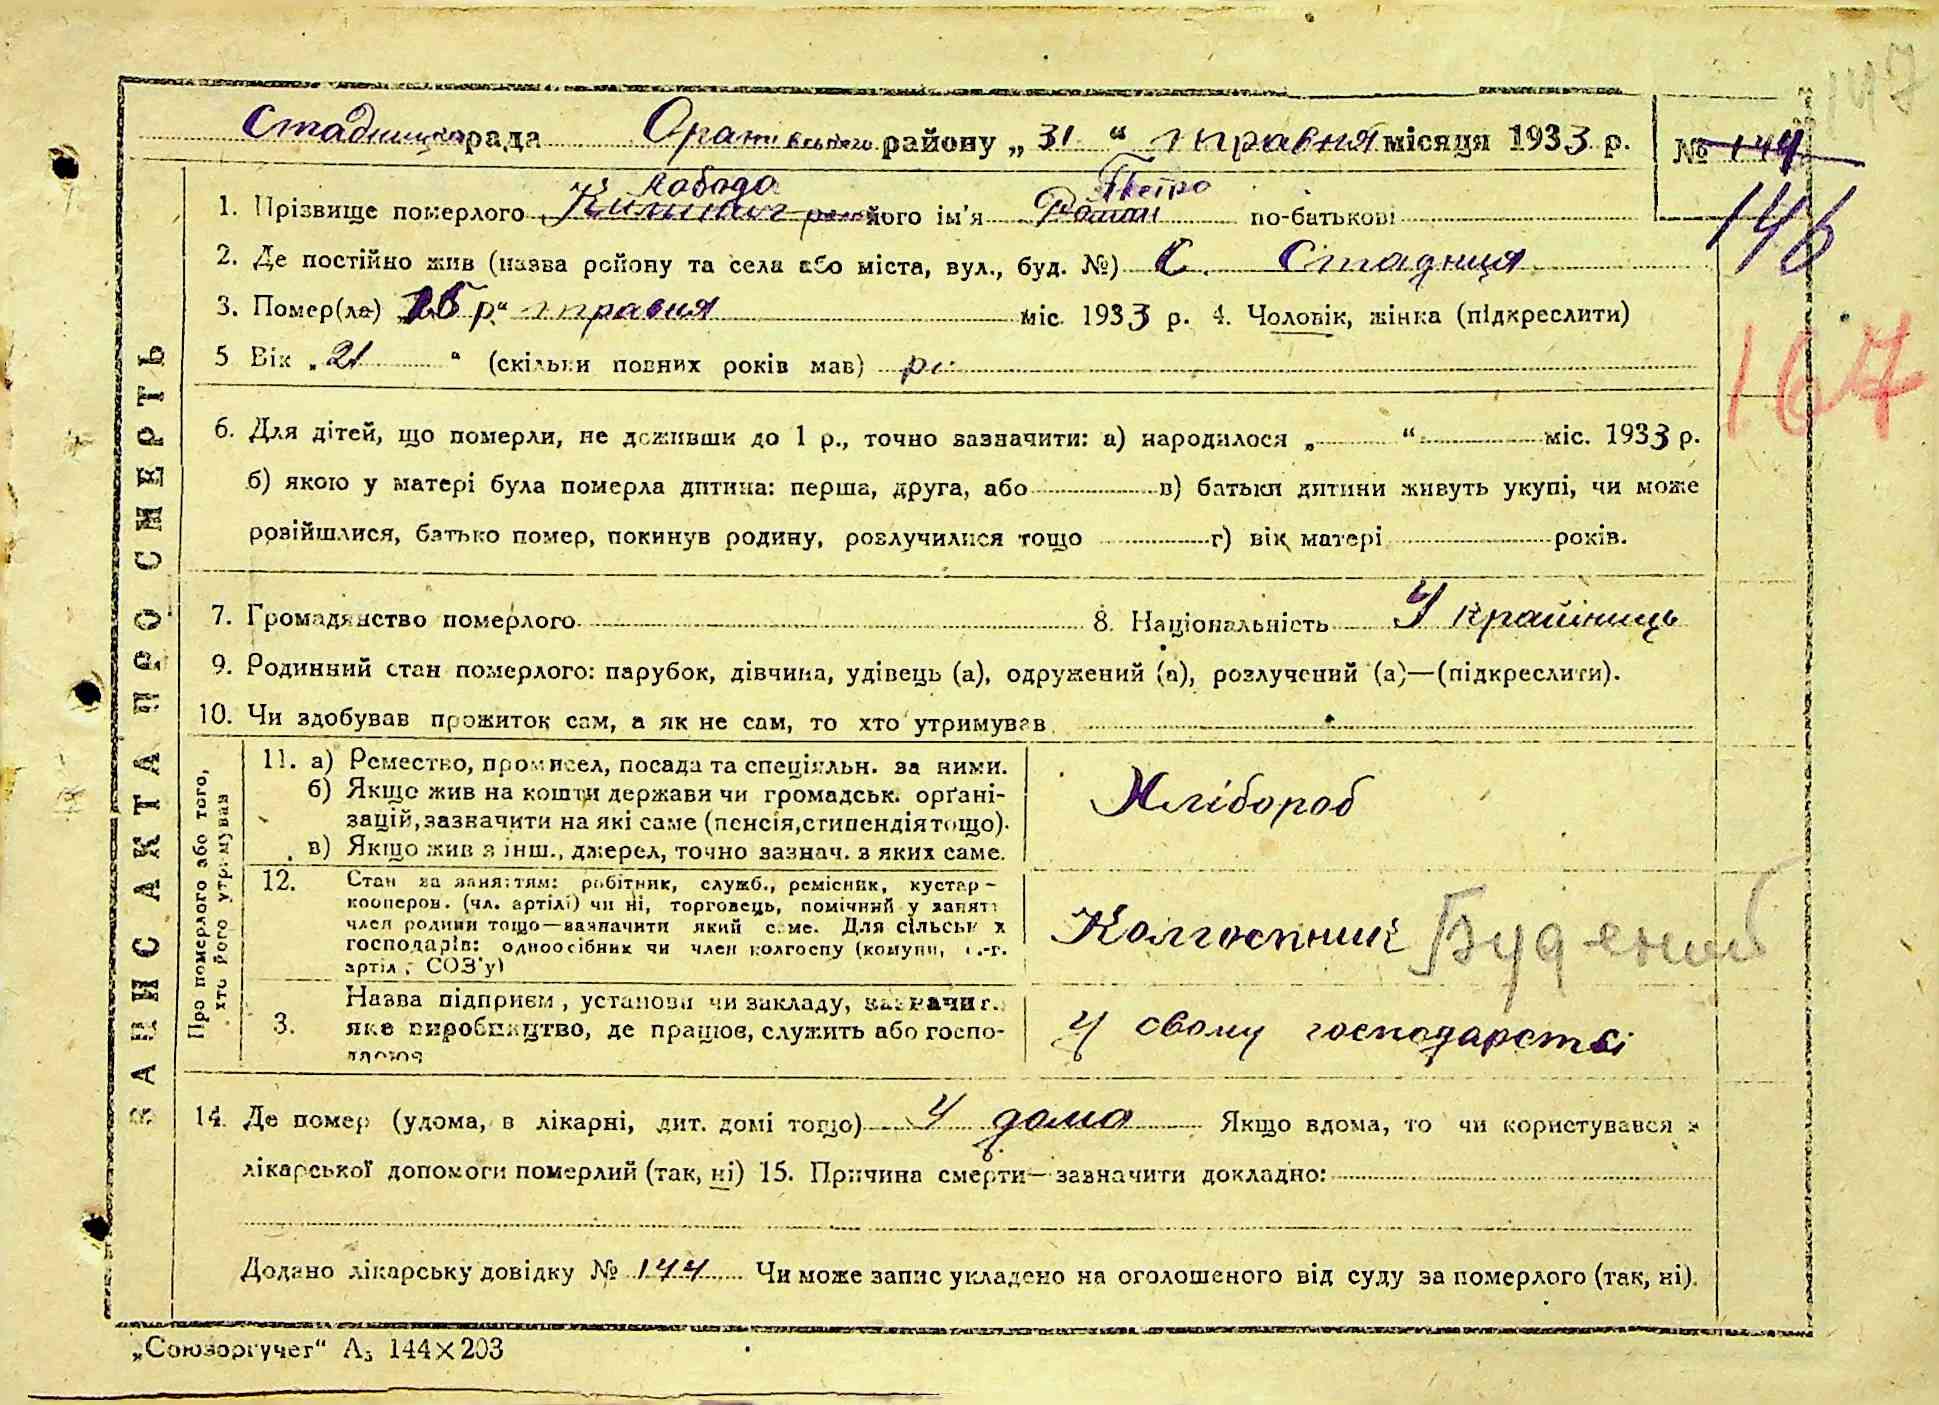 147
Стадницьк рада Оратівського району „31“ травня місяця 1933 р. № 144
146
Лобода Петро
1. Прізвище померлого його ім'я по-батькові
2. Де постійно жив (назва району та села або міста, вул., буд. №) С. Стадниця
3. Помер(ла) р“ травня міс. 1933 р. 4. Чоловік, жінка (підкреслити)
5 Вік „21“ (скільки повних років мав)
167
6. Для дітей, що померли, не доживши до 1 р., точно зазначити: а) народилося „ “ міс. 1933 р.
б) якою у матері була померла дитина: перша, друга, або в) батьки дитини живуть укупі, чи може
розійшлися, батько помер, покинув родину, розлучилися тощо г) вік матері років.
7. Громадянство померлого 8. Національність Украйінець
9. Родинний стан померлого: парубок, дівчина, удівець (а), одружений (а), розлучений (а)—(підкреслити).
10. Чи здобував прожиток сам, а як не сам, то хто утримував
ЗАПИС АКТА ПРО СМЕРТЬ
Про померлого або того,
хто його утримував
11. а) Ремество, промисел, посада та спеціяльн. за ними.
б) Якщо жив на кошти держави чи громадськ. орґані-
зацій, зазначити на які саме (пенсія, стипендія тощо).
в) Якщо жив з інш., джерел, точно зазнач. з яких саме.
Хлібороб
12. Стан за заняттям: робітник, служб., ремісник, кустар-
кооперов. (чл. артілі) чи ні, торговець, помічний у занятт
член родини тощо—зазначити який саме. Для сільськ х
господарів: одноосібник чи член колгоспу (комуни, с.-г.
артіл , СОЗ'у)
Колгоспник Будений
3. Назва підприєм, установи чи закладу, зазначит.
яке виробництво, де працює, служить або госпо-
дарює
У свому господарстві
14. Де помер (удома, в лікарні, дит. домі тощо) У дома Якщо вдома, то чи користувався з
лікарської допомоги померлий (так, ні) 15. Причина смерти—зазначити докладно:
Додано лікарську довідку № 144 Чи може запис укладено на оголошеного від суду за померлого (так, ні).
„Союзоргучет“ А₅ 144×203